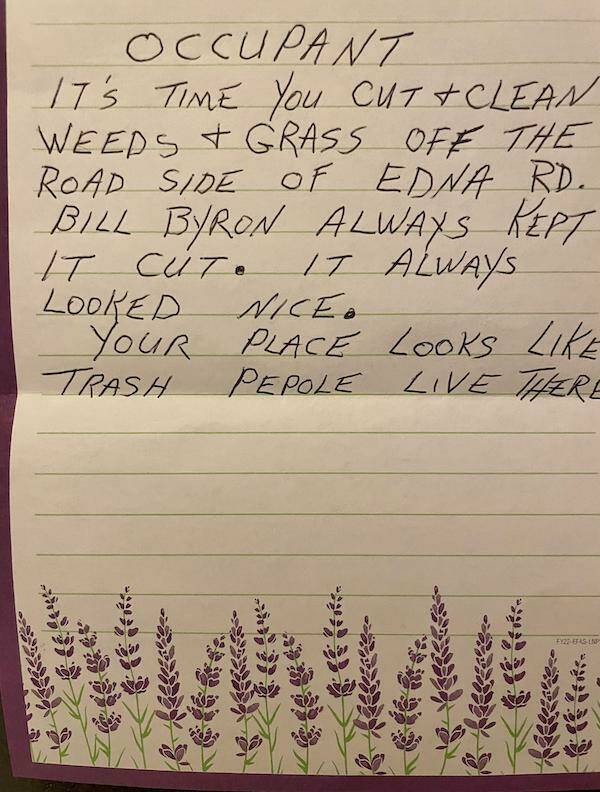 OCCUPANT
IT'S TIME YOU CUT & CLEAN
WEEDS & GRASS OFF THE
ROAD SIDE OF EDNA RD.
BILL BYRON ALWAYS KEPT
IT CUT. IT ALWAYS
LOOKED NICE.
YOUR PLACE LOOKS LIKE
TRASH PEPOLE LIVE THERE